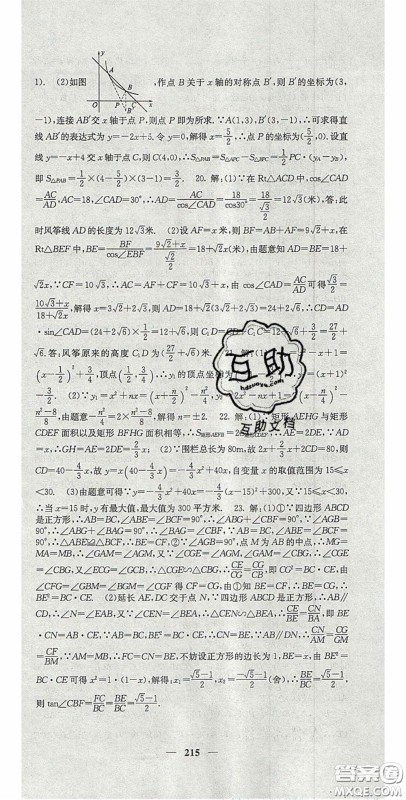 1). (2)如图 y A B O P C x B′ ,作点 B 关于 x 轴的对称点 B′,则 B′的坐标为(3,
-1),连接 AB′交 x 轴于点 P,则点 P 即为所求.∵A(1,3),B′(3,-1),∴可求得直
线 AB′的表达式为 y=-2x+5.令 y=0,解得 x=5/2,∴点 P 的坐标为(5/2,0).设直
线 y=-x+4 交 x 轴于点 C,则 C(4,0),∴S△PAB=S△APC-S△BPC=1/2 PC·(yA-yB),
即 S△PAB=1/2×(4-5/2)×(3-1)=3/2. 20. 解:(1)在 Rt△ACD 中,cos∠CAD=
AC/AD,AC=18,∠CAD=30°,∴AD=AC/cos∠CAD=18/cos30°=18/(√3/2)=12√3(米),答:此
时风筝线 AD 的长度为 12√3米. (2)设 AF=x 米,则 BF=AB+AF=9√2+x,在
Rt△BEF 中,BE=BF/cos∠EBF=(9√2+x)/(√2/2)=18+√2x(米),由题意知 AD=BE=18+
√2x,∵CF=10√3,∴AC=AF+CF=10√3+x,由 cos∠CAD=AC/AD可得√3/2=
(10√3+x)/(18+√2x),解得 x=3√2+2√3,则 AD=18+√2(3√2+2√3)=24+2√6,∴CD=AD
·sin∠CAD=(24+2√6)×1/2=12+√6,则 C₁D=CD-C₁C=12+√6+3/2=27/2+
√6,答:风筝原来的高度 C₁D 为(27/2+√6)米. 21.
∴顶点坐标为
n²-8/4,由题意,解得 n=±2. 22. 解:(1)∵矩形 AEHG 与矩形
CDEF 面积以及矩形 BFHG 面积相等,∴AE=2DE.∵AD
=x,∴GH=AE=2DE=2/3x. (2)∵围栏总长为80m,故2x+4/3x+2CD=80,则
CD=40-5/3x,故 y=x(40-5/3x)=-5/3x²+40x,自变量 x 的取值范围为15≤x
<30. (3)由题意可得∵y=-5/3x²+40x=-5/3(x-15)²+300,又∵15≤x<30,
∴当 x=15 时,y 有最大值,最大值为 300 平方米. 23. 解:(1)①∵四边形 ABCD
是正方形,∴AB=BC,∠ABE=∠BCF=90°,∴∠ABG+∠CBF=90°,∵∠AGB=
90°,∴∠ABG+∠BAG=90°,∴∠BAG=∠CBF,∵AB=BC,∠ABE=∠BCF=
90°,∴△ABE≌△BCF,∴BE=CF;②∵∠AGB=90°,点 M 为 AB 的中点,∴MG=
MA=MB,∴∠GAM=∠AGM,又∵∠CGE=∠AGM,∠GAM=∠CBG,∴∠CGE
=∠CBG,又∠ECG=∠GCB,∴△CGE∽△CBG,∴CE/CG=CG/CB,即 CG²=BC·CE,由
∠CFG=∠GBM=∠BGM=∠CGF 得 CF=CG,由①知 BE=CF,∴BE=CG,∴
BE²=BC·CE. (2)延长 AE,DC 交于点 N,∵四边形 ABCD 是正方形,∴AB//CD,
∴∠N=∠EAB,又∵∠CEN=∠BEA,∴△CEN∽△BEA,∴CE/BE=CN/BA,即 BE·CN
=AB·CE,∵AB=BC,BE²=BC·CE,∴CN=BE,∵AB//DN,∴CN/AM=CG/GM
=CF/BM,∵AM=MB,∴FC=CN=BE,不妨设正方形的边长为1,BE=x,由 BE²=
BC·CE 可得 x²=1·(1-x),解得:x₁=(√5-1)/2,x₂=(-√5-1)/2(舍),∴BE/BC=(√5-1)/2,
则 tan∠CBF=FC/BC=BE/BC=(√5-1)/2.
互助
hdzuoye.com
互助文档
215
答案圈
MXQE.COM